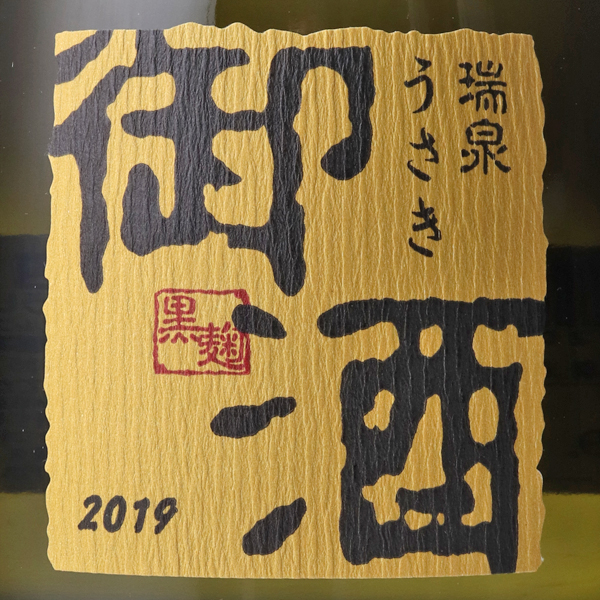 瑞泉
うさき
御酒
黒麹
2019